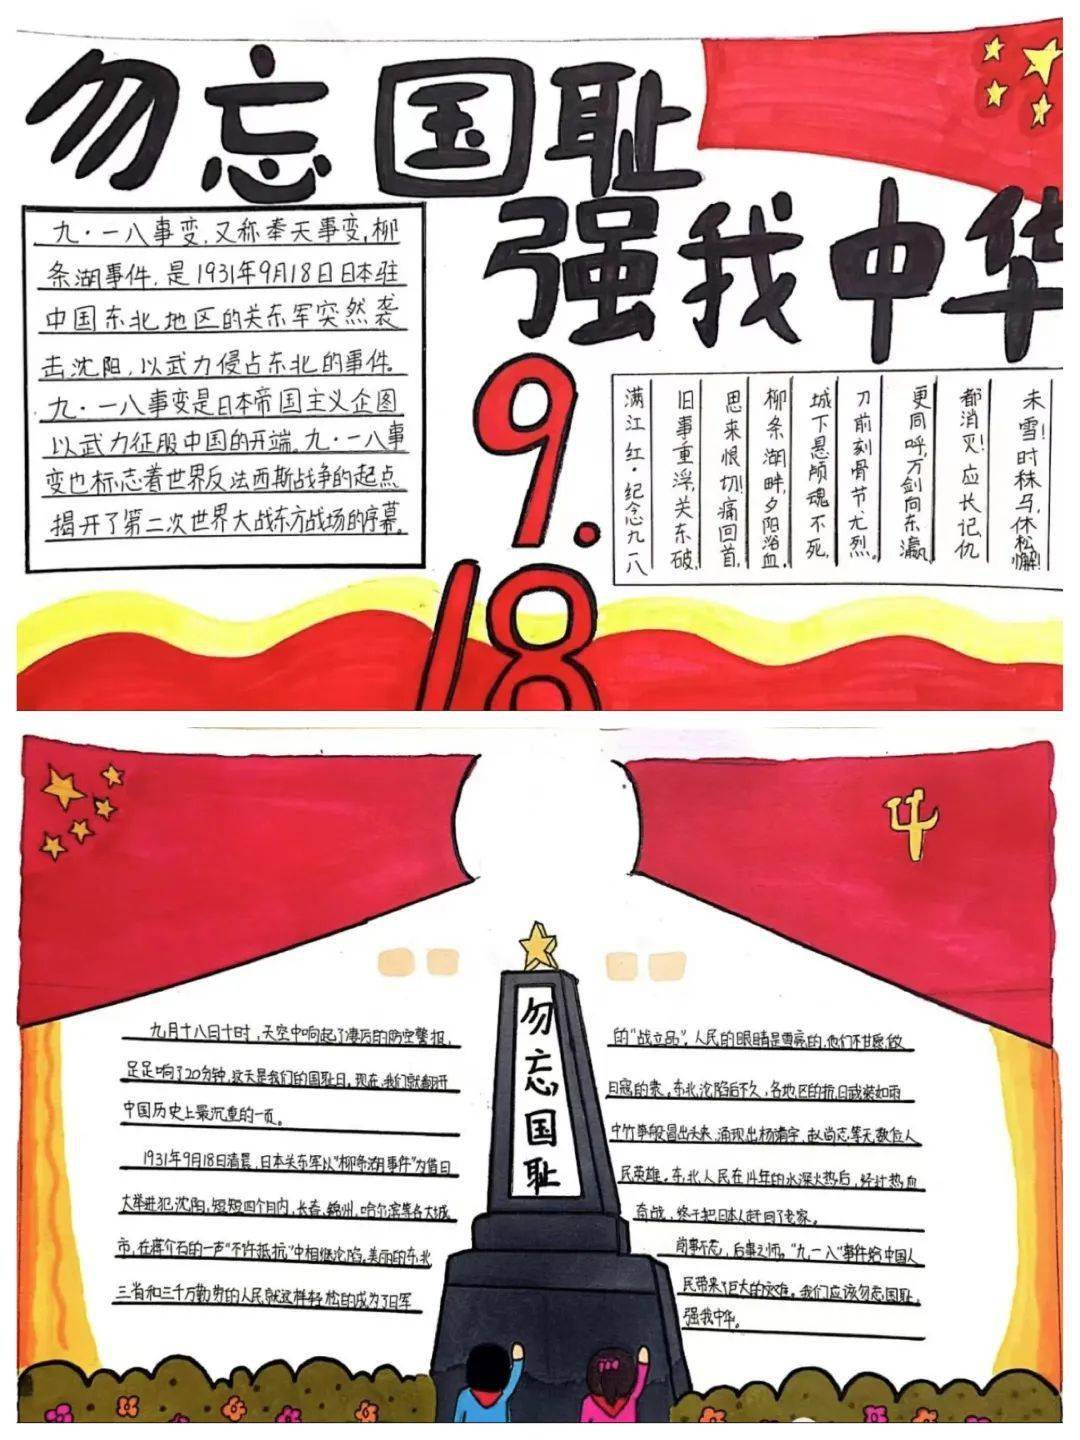 勿忘国耻
强我中华
九·一八事变,又称奉天事变,柳
条湖事件,是1931年9月18日日本驻
中国东北地区的关东军突然袭
击沈阳,以武力侵占东北的事件。
九·一八事变是日本帝国主义企图
以武力征服中国的开端。九·一八事
变也标志着世界反法西斯战争的起点
揭开了第二次世界大战东方战场的序幕。
9.
18
满江红·纪念九一八
旧事重浮,关东破,
思来恨切!痛回首,
柳条湖畔,夕阳浴血.
城下悬颅魂不死,
刀前刻骨节尤烈。
更同呼,万剑向东瀛,
都消灭!应长记,仇
未雪!时秣马,休松懈!
勿忘国耻
九月十八日十时,天空中响起了凄厉的防空警报,
足足响了20分钟,这天是我们的国耻日。现在,我们就翻开
中国历史上最沉重的一页。
1931年9月18日清晨,日本关东军以"柳条湖事件"为借口
大举进犯沈阳,短短四个月内,长春,锦州,哈尔滨等各大城
市,在蒋介石的一声"不许抵抗"中相继沦陷,美丽的东北
三省和三千万勤劳的人民就这样轻松的成为了日军
的"战立品",人民的眼睛是雪亮的,他们不甘愿做
日寇的隶。东北沦陷后不久,各地区的抗日武装如雨
中竹笋般冒出头来,涌现出杨靖宇,赵尚志等无数位人
民英雄。东北人民在14年的水深火热后,经过热血
奋战,终于把日本人赶回了老家。
前事不忘,后事之师。"九一八"事件给中国人
民带来了巨大的灾难。我们应该勿忘国耻,
强我中华。